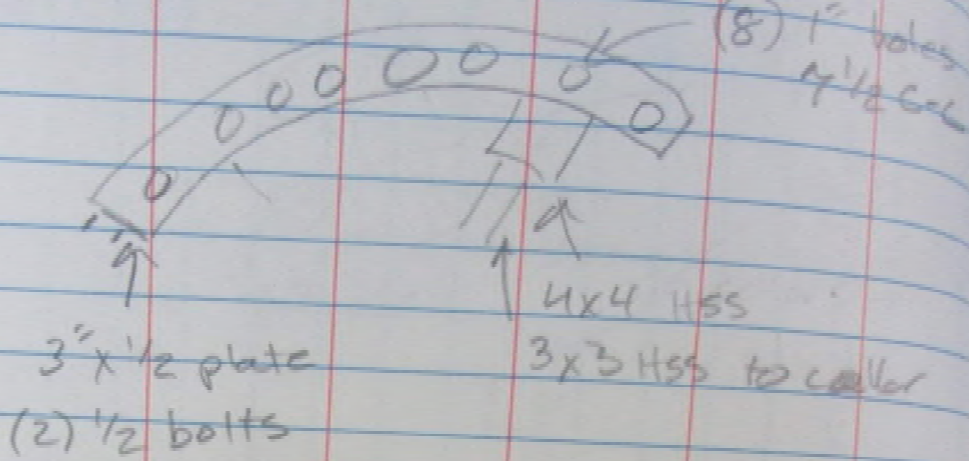 (8) 1" holes
7 1/2 C-C
4x4 HSS
3"x 1/2 plate
3x3 HSS to collar
(2) 1/2 bolts